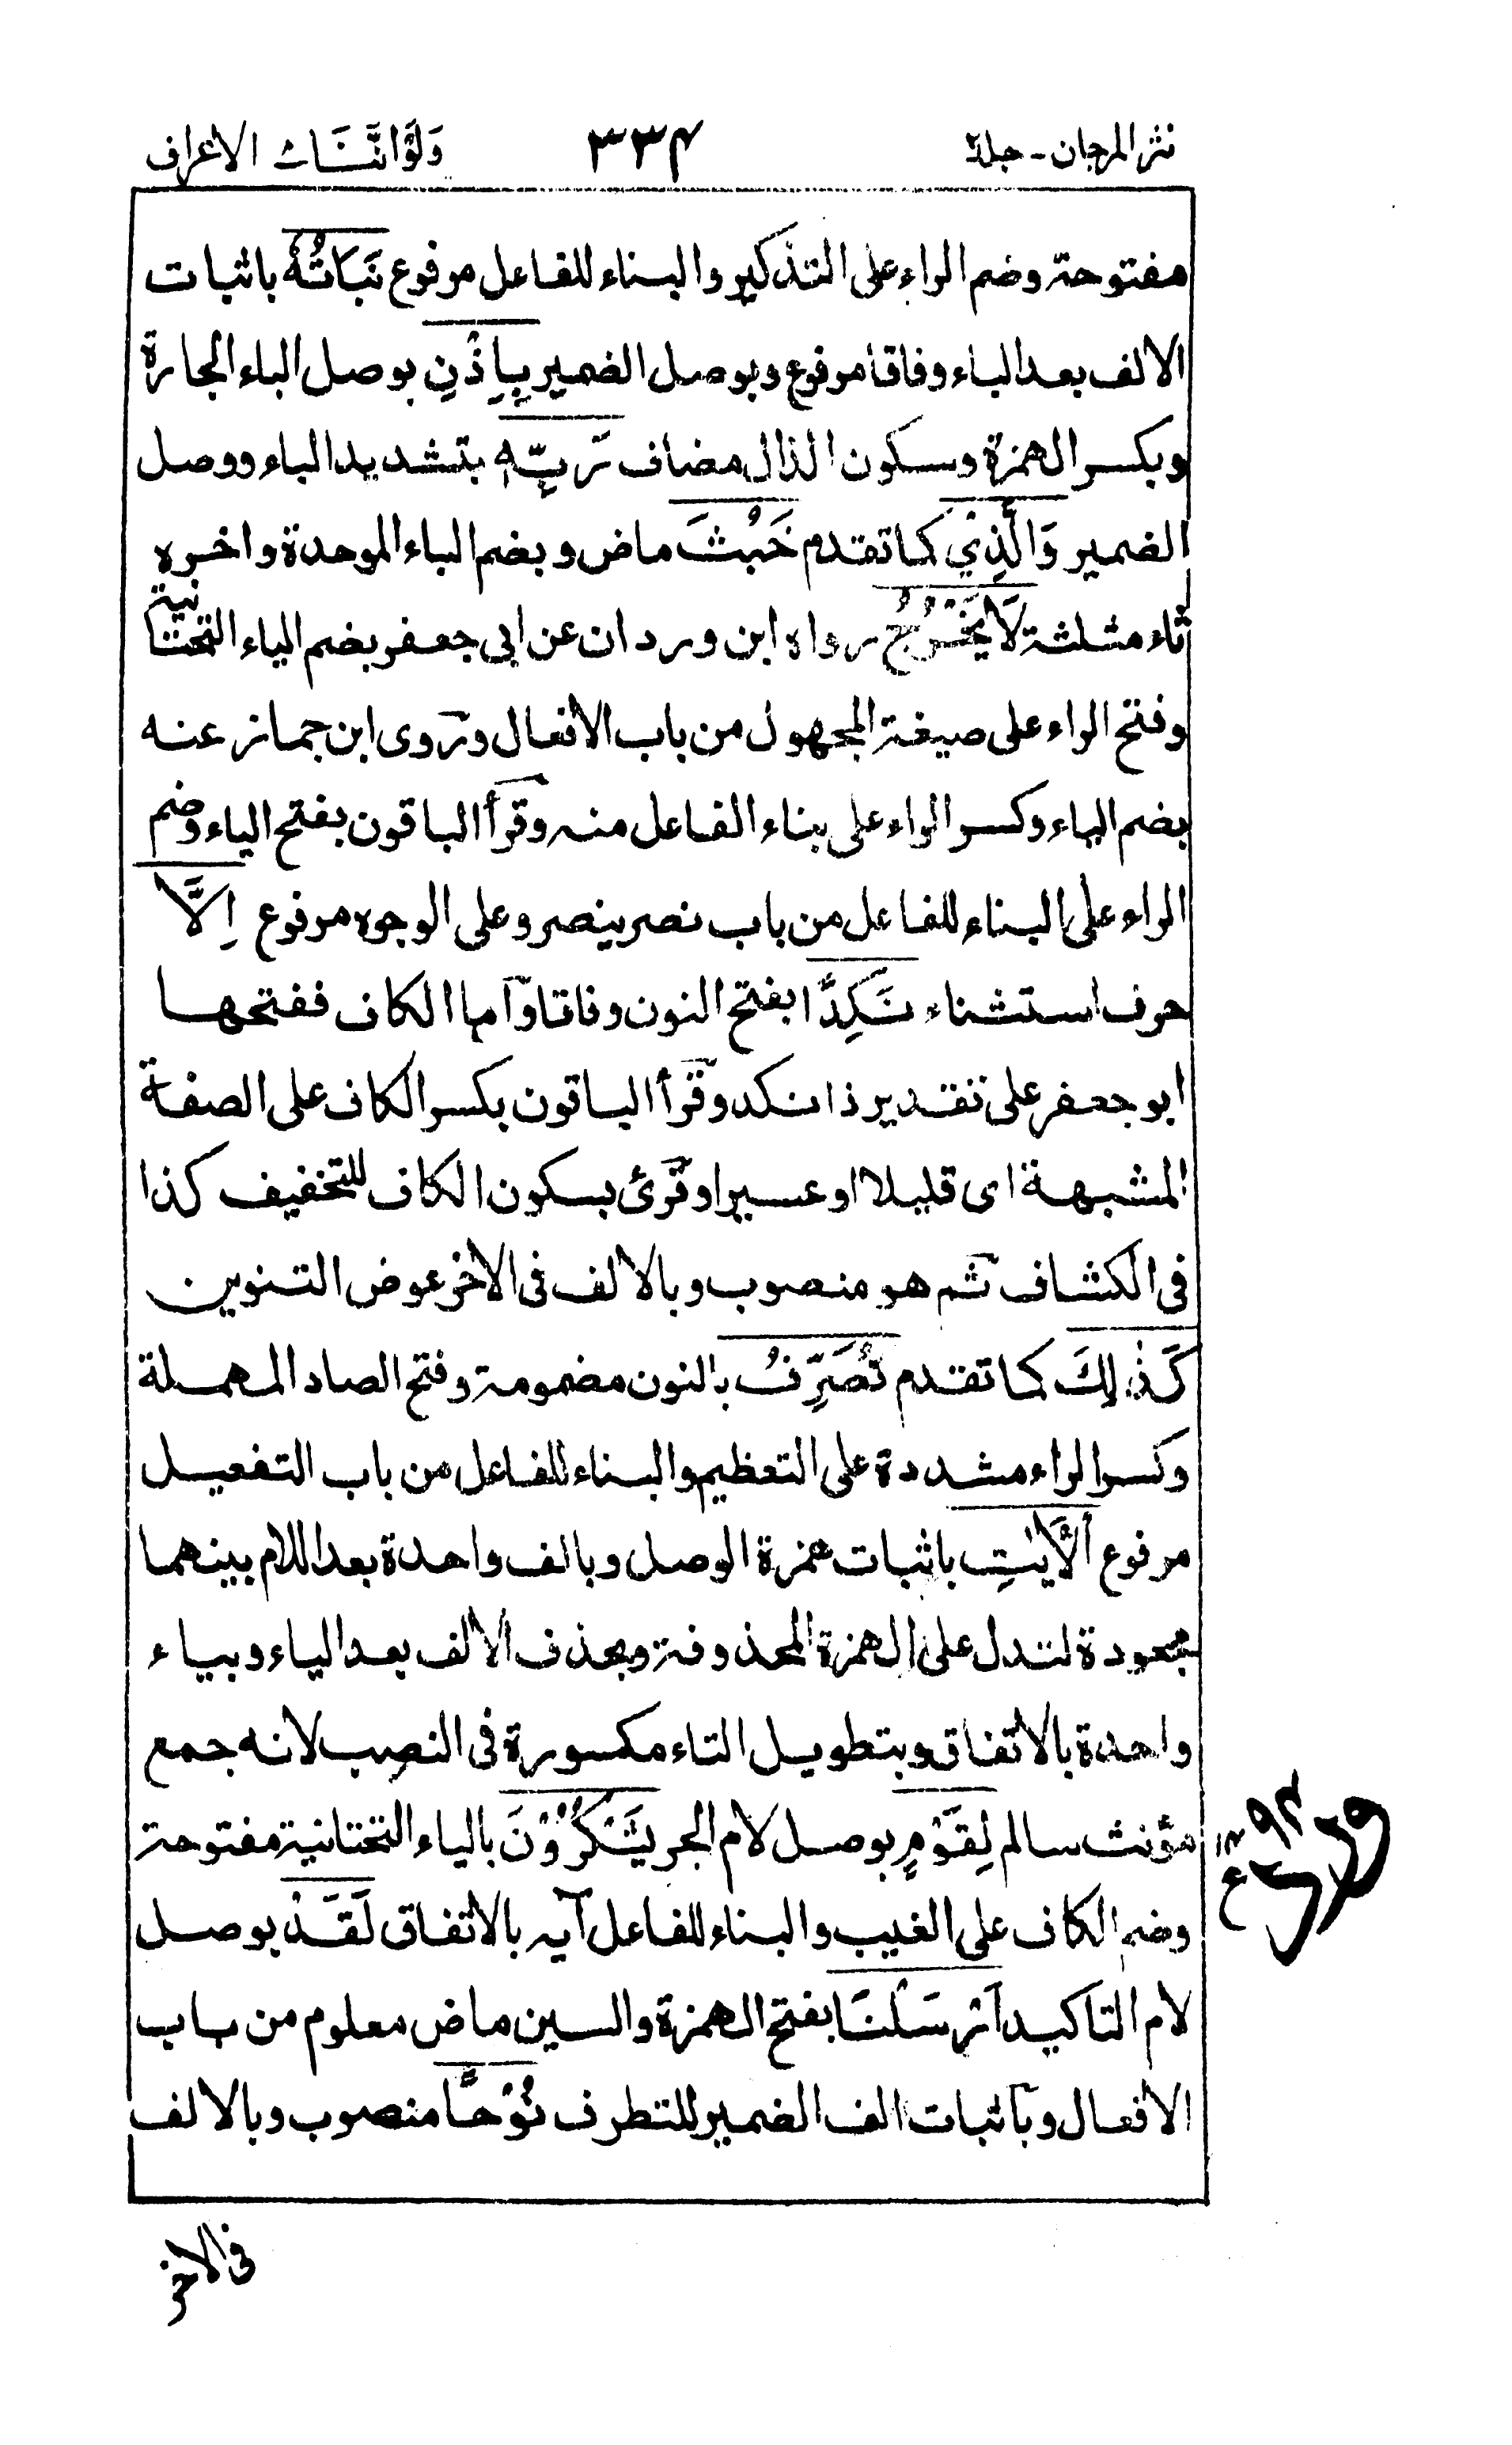 نثر المرجان - جلد٢ ٣٣٤ وَلَوْاَنَّنَا الاعراف
مفتوحة وضم الراء على التذكير والبناء للفاعل مرفوع نَبَاتُهٗ باثبات
الالف بعد الباء وفاقا مرفوع وبوصل الضمير بِاِذْنِ بوصل الباء الجارة
وبكسر الهمزة وسكون الذال مضاف رَبِّهٖ بتشديد الباء ووصل
الضمير وَالَّذِيْ كما تقدم خَبُثَ ماض وبضم الباء الموحدة واخره
ثاء مثلثة لَا يَخْرُجُ رواه ابن وردان عن ابى جعفر بضم الياء التحتانية
وفتح الراء على صيغة المجهول من باب الافعال وروى ابن جماز عنه
بضم الياء وكسر الراء على بناء الفاعل منه وقرأ الباقون بفتح الياء وضم
الراء على البناء للفاعل من باب نصر ينصر وعلى الوجوه مرفوع اِلَّا
حرف استثناء نَكِدًا بفتح النون وفاقا واما الكاف ففتحها
ابو جعفر على تقدير ذا نكد وقرأ الباقون بكسر الكاف على الصفة
المشبهة اى قليلا او عسيرا وقرئ بسكون الكاف للتخفيف كذا
فى الكشاف ثم هو منصوب وبالالف فى الاخر عوض التنوين
كَذٰلِكَ كما تقدم نُصَرِّفُ بالنون مضمومة وفتح الصاد المهملة
وكسر الراء مشددة على التعظيم والبناء للفاعل من باب التفعيل
مرفوع الْاٰيٰتِ باثبات همزة الوصل وبالف واحدة بعد اللام بينهما
مجعودة لتدل على الهمزة المحذوفة وبحذف الالف بعد الياء وبياء
واحدة بالاتفاق وبتطويل التاء مكسورة فى النصب لانه جمع
مؤنث سالم لِقَوْمٍ بوصل لام الجر يَشْكُرُوْنَ بالياء التحتانية مفتوحة
وضم الكاف على الغيب والبناء للفاعل آية بالاتفاق لَقَدْ بوصل
لام التاكيد اَرْسَلْنَا بفتح الهمزة والسين ماض معلوم من باب
الافعال وباثبات الف الضمير للتطرف نُوْحًا منصوب وبالالف
فى الاخر